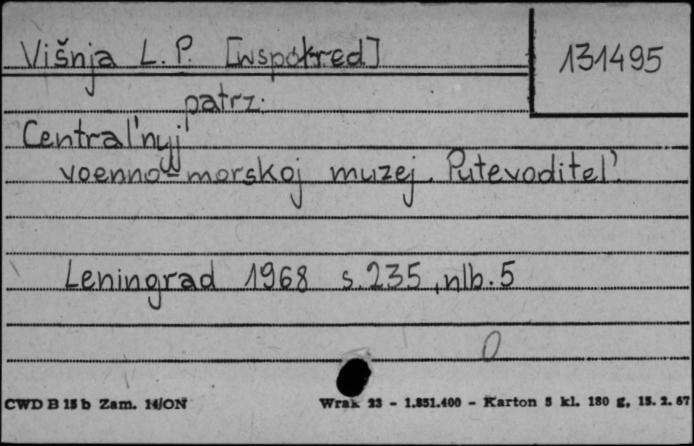 Višnja L. P. [współred]
131495
patrz:
Central'nyj
voenno-morskoj muzej. Putevoditel'.
Leningrad 1968 s. 235, nlb. 5
0
CWD B 15 b Zam. 14/ON
Wrak 23 - 1.851.400 - Karton 5 kl. 180 g, 15. 2. 67